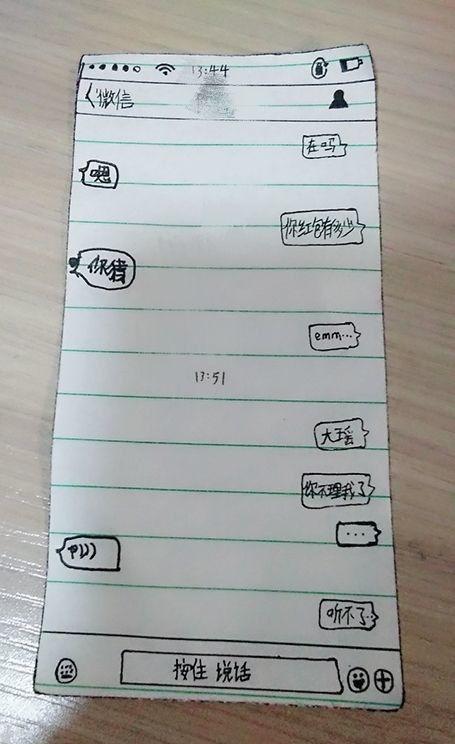 13:44
微信
在吗
嗯
你红包有多少
你猜
emm...
13:51
大瑶
你不理我了
...
听不了...
按住 说话